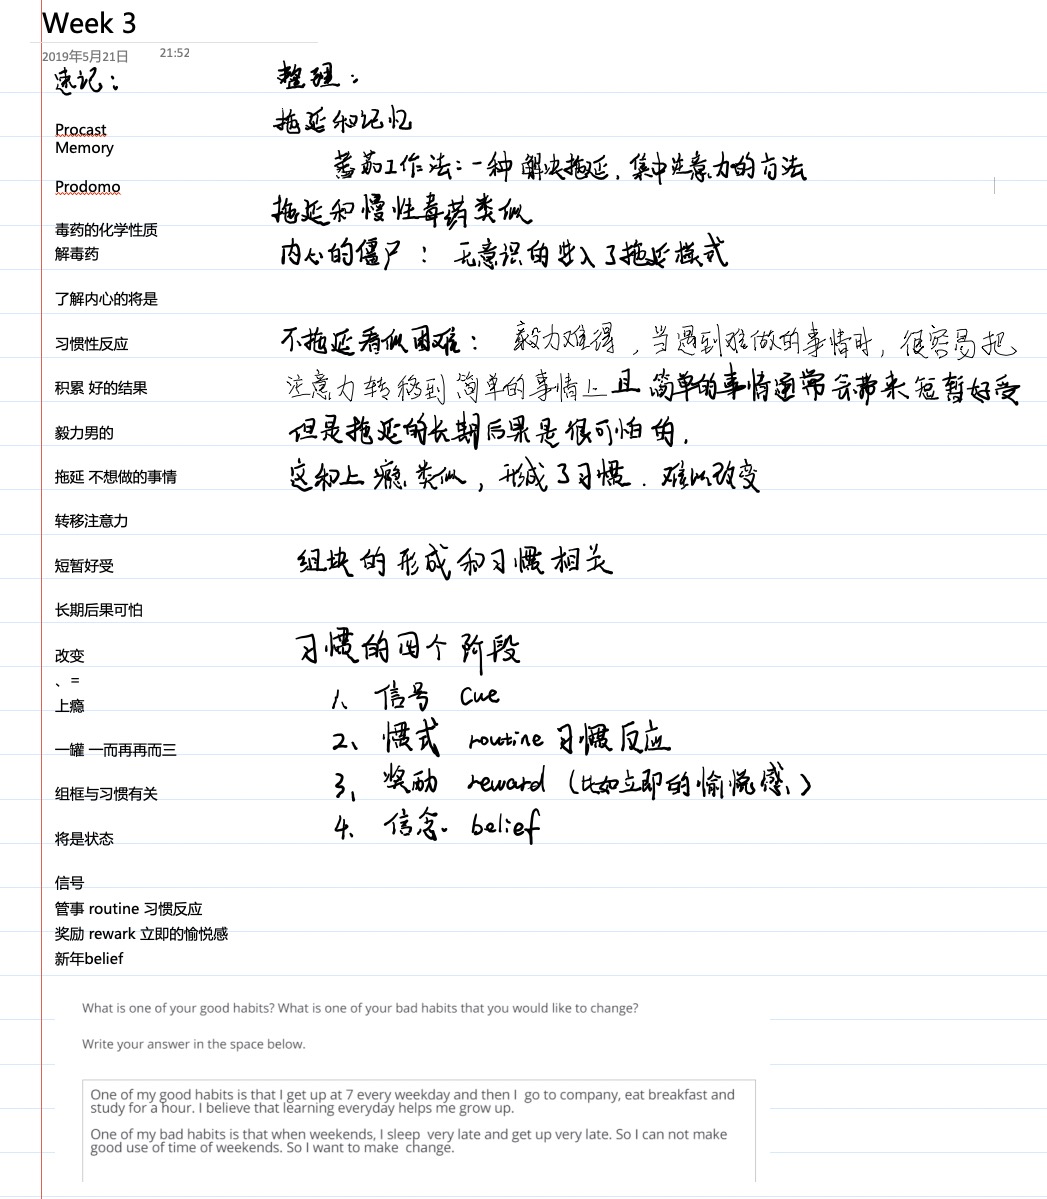 Week 3
2019年5月21日 21:52
速记：
Procast
Memory
Prodomo
毒药的化学性质
解毒药
了解内心的将是
习惯性反应
积累 好的结果
毅力男的
拖延 不想做的事情
转移注意力
短暂好受
长期后果可怕
改变
、=
上瘾
一罐 一而再再而三
组框与习惯有关
将是状态
信号
管事 routine 习惯反应
奖励 rewark 立即的愉悦感
新年belief
整理：
拖延和记忆
番茄工作法：一种解决拖延，集中注意力的方法
拖延和慢性毒药类似
内心的僵尸：无意识的进入了拖延模式
不拖延看似困难：毅力难得，当遇到难做的事情时，很容易把
注意力转移到简单的事情上且简单的事情通常会带来短暂好受
但是拖延的长期后果是很可怕的.
这和上瘾类似，形成了习惯.难以改变
组块的形成和习惯相关
习惯的四个阶段
1、信号 Cue
2、惯式 routine 习惯反应
3、奖励 reward（比如立即的愉悦感、）
4、信念. belief
What is one of your good habits? What is one of your bad habits that you would like to change?
Write your answer in the space below.
One of my good habits is that I get up at 7 every weekday and then I  go to company, eat breakfast and
study for a hour. I believe that learning everyday helps me grow up.
One of my bad habits is that when weekends, I sleep  very late and get up very late. So I can not make
good use of time of weekends. So I want to make  change.